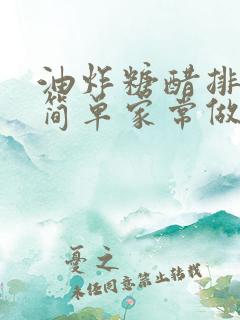 油炸糖醋排
简单家常做
忧之
未经同意禁止转载